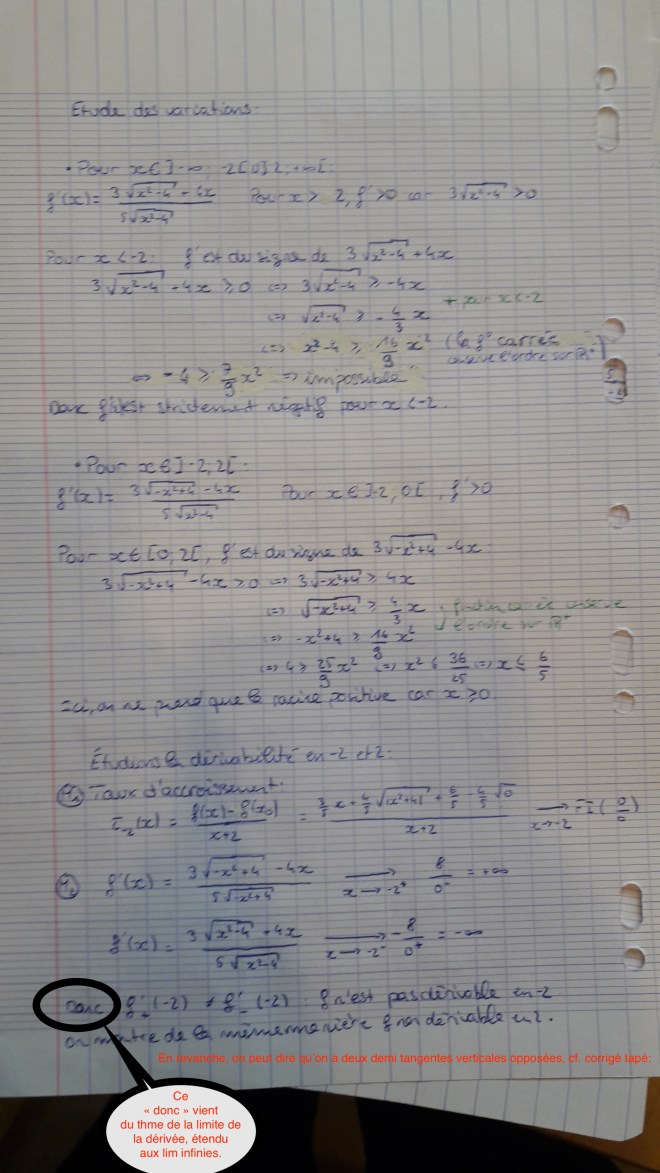 Etude des variations.
• Pour x ∈ ]-∞; -2[ ∪ ]2; +∞[:
f'(x) = (3√(x²-4) + 4x) / (5√(x²-4)) Pour x > 2, f' > 0 car 3√(x²-4) > 0
Pour x < -2: f' est du signe de 3√(x²-4) + 4x
3√(x²-4) + 4x ≥ 0 <=> 3√(x²-4) ≥ -4x
<=> √(x²-4) ≥ -4/3 x + pour x<-2
<=> x²-4 ≥ 16/9 x² (la f° carrés
conserve l'ordre sur ℝ+)
<=> -4 ≥ 7/9 x² => impossible
Donc f' est strictement négatif pour x < -2.
• Pour x ∈ ]-2, 2[.
f'(x) = (3√(-x²+4) - 4x) / (5√(x²-4)) Pour x ∈ ]-2, 0[, f' > 0
Pour x ∈ [0, 2[, f' est du signe de 3√(-x²+4) - 4x
3√(-x²+4) - 4x ≥ 0 <=> 3√(-x²+4) ≥ 4x
<=> √(-x²+4) ≥ 4/3 x conserve
<=> -x²+4 ≥ 16/9 x² l'ordre sur ℝ+
<=> 4 ≥ 25/9 x² <=> x² ≤ 36/25 <=> x ≤ 6/5
Ici, on ne prend que la racine positive car x ≥ 0.
Étudions la dérivabilité en -2 et 2:
Taux d'accroissement:
τ₋₂(x) = (f(x) - f(x₀)) / (x+2) = (3/5 x + 4/5 √(|x²+4|) + 6/5 - 4/5 √0) / (x+2) → x→-2 FI (0/0)
f'(x) = (3√(-x²+4) - 4x) / (5√(-x²+4)) → x→-2⁺ 8/0⁻ = +∞
f'(x) = (3√(x²-4) + 4x) / (5√(x²-4)) → x→-2⁻ -8/0⁺ = -∞
Donc f'₊(-2) ≠ f'₋(-2): f n'est pas dérivable en -2
on montre de la même manière f non dérivable en 2.
En revanche, on peut dire qu'on a deux demi tangentes verticales opposées, cf. corrigé tapé:
Ce
« donc » vient
du thme de la limite de
la dérivée, étendu
aux lim infinies.